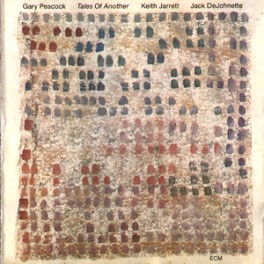 Gary Peacock Tales Of Another Keith Jarrett Jack DeJohnette
ECM